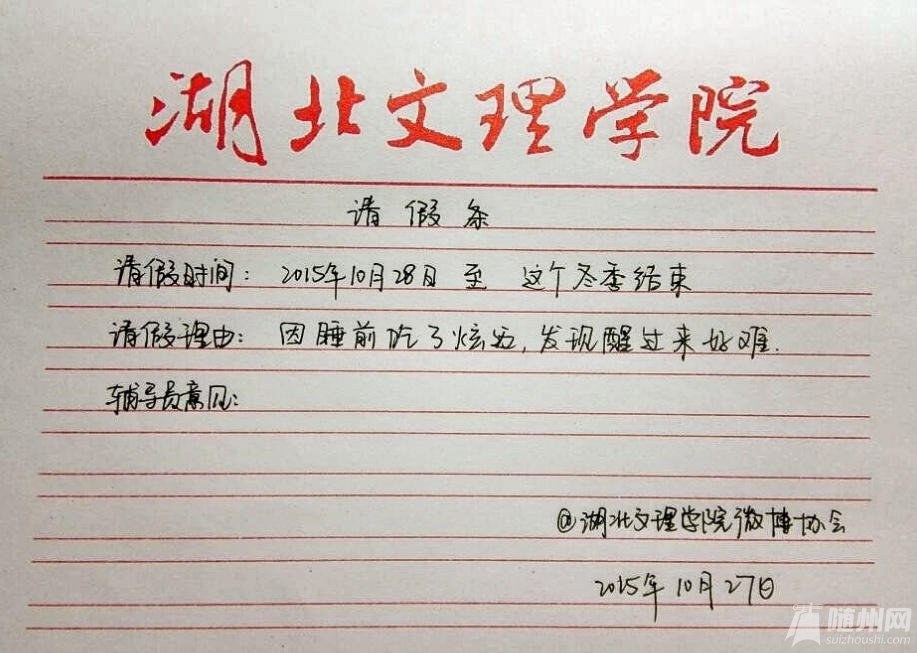 湖北文理学院
请假条
请假时间：2015年10月28日 至 这个冬季结束
请假理由：因睡前吃了炫迈，发现醒过来好难.
辅导员意见：
@湖北文理学院微博协会
2015年10月27日
随州网
suizhoushi.com